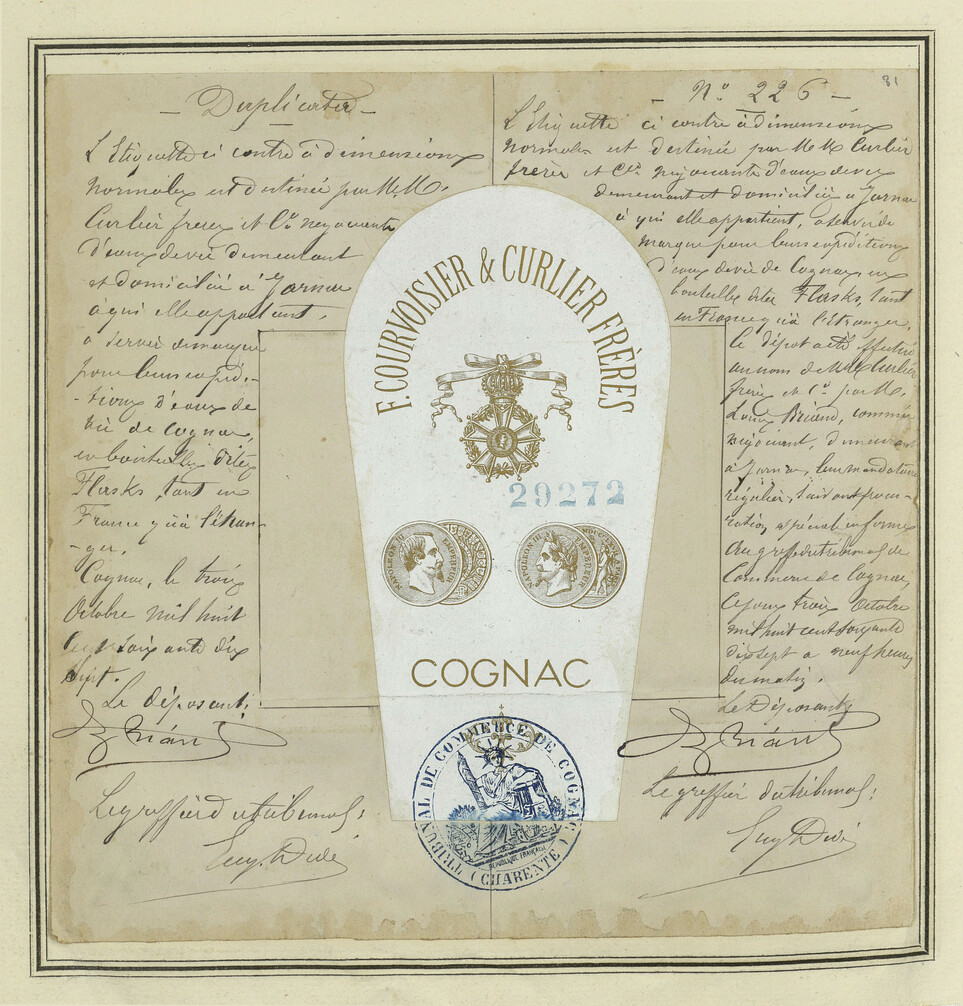 81
— Duplicata —
L'Etiquette ci contre à dimensions
normales est destinée par M.M.
Curlier frères et Cie négociants
d'eaux de vie demeurant
et domiciliés à Jarnac
à qui elle appartient,
a servir de marque
pour leurs expédi-
-tions d'eaux de
vie de Cognac,
en bouteilles dites
Flasks, tant en
France qu'à l'étran-
-ger.
Cognac, le trois
Octobre mil huit
cent soixante dix
sept.
Le déposant:
Briand
Le greffier du tribunal:
— No. 226 —
L'Etiquette ci contre à dimensions
normales est destinée par M.M. Curlier
frères et Cie négociants d'eaux de vie
demeurant et domiciliés à Jarnac
à qui elle appartient, a servir de
marque pour leurs expéditions
d'eaux de vie de Cognac, en
bouteilles dites Flasks, tant
en France qu'à l'étranger.
le dépôt a été effectué
au nom de M.M. Curlier
frères et Cie par M.
Louis Briand, commis
négociant, demeurant
à Jarnac, leur mandataire
régulier, suivant procu-
-ration spéciale en forme
Au greffe du tribunal de
Commerce de Cognac
Ce jour trois Octobre
mil huit cent soixante
dix sept a neuf heures
du matin.
Le Déposant
Briand
Le greffier du tribunal:
F. COURVOISIER & CURLIER FRÈRES
29272
NAPOLEON III EMPEREUR
NAPOLEON III EMPEREUR
COGNAC
TRIBUNAL DE COMMERCE DE COGNAC
RÉPUBLIQUE FRANÇAISE
(CHARENTE)